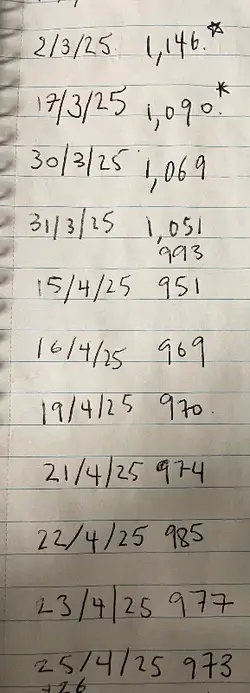 2/3/25. 1,146.☆
17/3/25 1,090.*
30/3/25 1,069
31/3/25 1,051
993
15/4/25 951
16/4/25 969
19/4/25 970.
21/4/25 974
22/4/25 985
23/4/25 977
25/4/25 973
+26